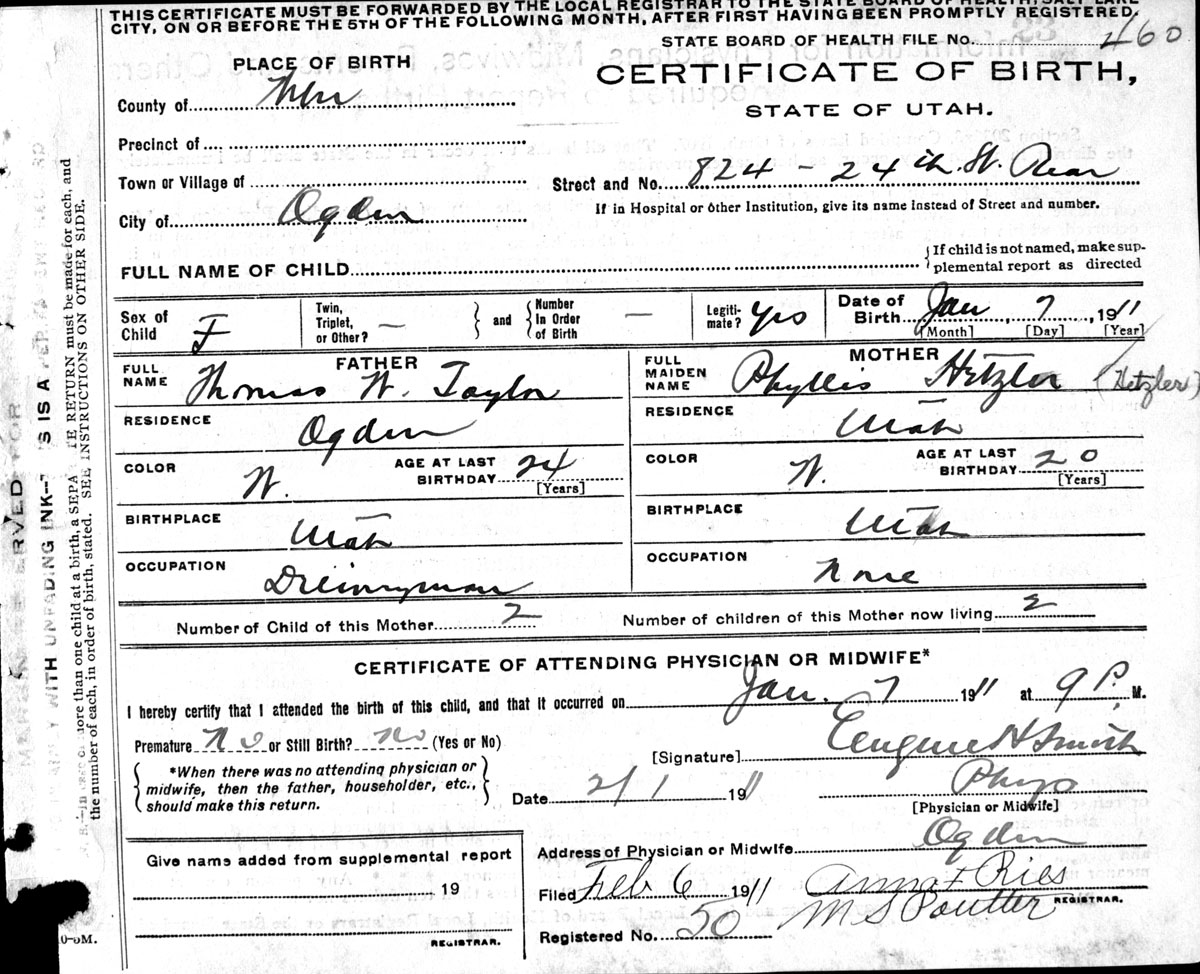 THIS CERTIFICATE MUST BE FORWARDED BY THE LOCAL REGISTRAR TO THE STATE BOARD OF HEALTH, SALT LAKE
CITY, ON OR BEFORE THE 5TH OF THE FOLLOWING MONTH, AFTER FIRST HAVING BEEN PROMPTLY REGISTERED.
STATE BOARD OF HEALTH FILE No. 460
PLACE OF BIRTH
CERTIFICATE OF BIRTH,
STATE OF UTAH.
County of
Precinct of
Town or Village of
Street and No. 824 - 24th. St. Rear
City of Ogden
If in Hospital or other Institution, give its name instead of Street and number.
FULL NAME OF CHILD
If child is not named, make sup-
plemental report as directed
Sex of Child F
Twin, Triplet, or Other? — and Number In Order of Birth —
Legiti-mate? yes
Date of Birth Jan 7, 1911
[Month] [Day] [Year]
FATHER
FULL NAME Thomas W. Taylor
RESIDENCE Ogden
COLOR W. AGE AT LAST BIRTHDAY 24
[Years]
BIRTHPLACE Utah
OCCUPATION
MOTHER
FULL MAIDEN NAME Phyllis Hetzler (Hetzler)
RESIDENCE Utah
COLOR W. AGE AT LAST BIRTHDAY 20
[Years]
BIRTHPLACE Utah
OCCUPATION None
Number of Child of this Mother 2 Number of children of this Mother now living 2
CERTIFICATE OF ATTENDING PHYSICIAN OR MIDWIFE*
I hereby certify that I attended the birth of this child, and that it occurred on Jan. 7 1911 at 9 P. M.
Premature No or Still Birth? No (Yes or No)
[Signature] Eugene H Smith
*When there was no attending physician or
midwife, then the father, householder, etc.,
should make this return.
Date 2/1 1911
[Physician or Midwife]
Give name added from supplemental report
19
REGISTRAR.
Address of Physician or Midwife Ogden
Filed Feb 6 1911 Anna F Ries
M S
REGISTRAR.
Registered No. 50
WITH UNFADING INK
more than one child at a birth, a SEPA TE RETURN must be made for each, and
the number of each, in order of birth, stated. SEE INSTRUCTIONS ON OTHER SIDE.